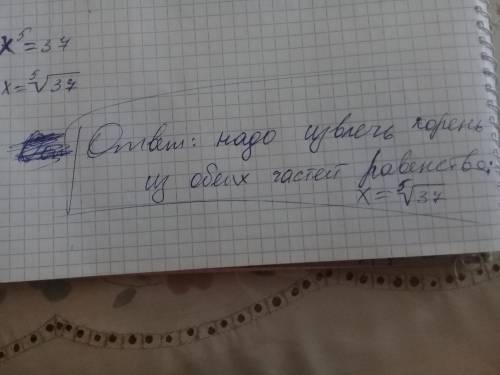 x⁵=37
x=⁵√37
Ответ: надо извлечь корень
из обеих частей равенства:
x=⁵√37